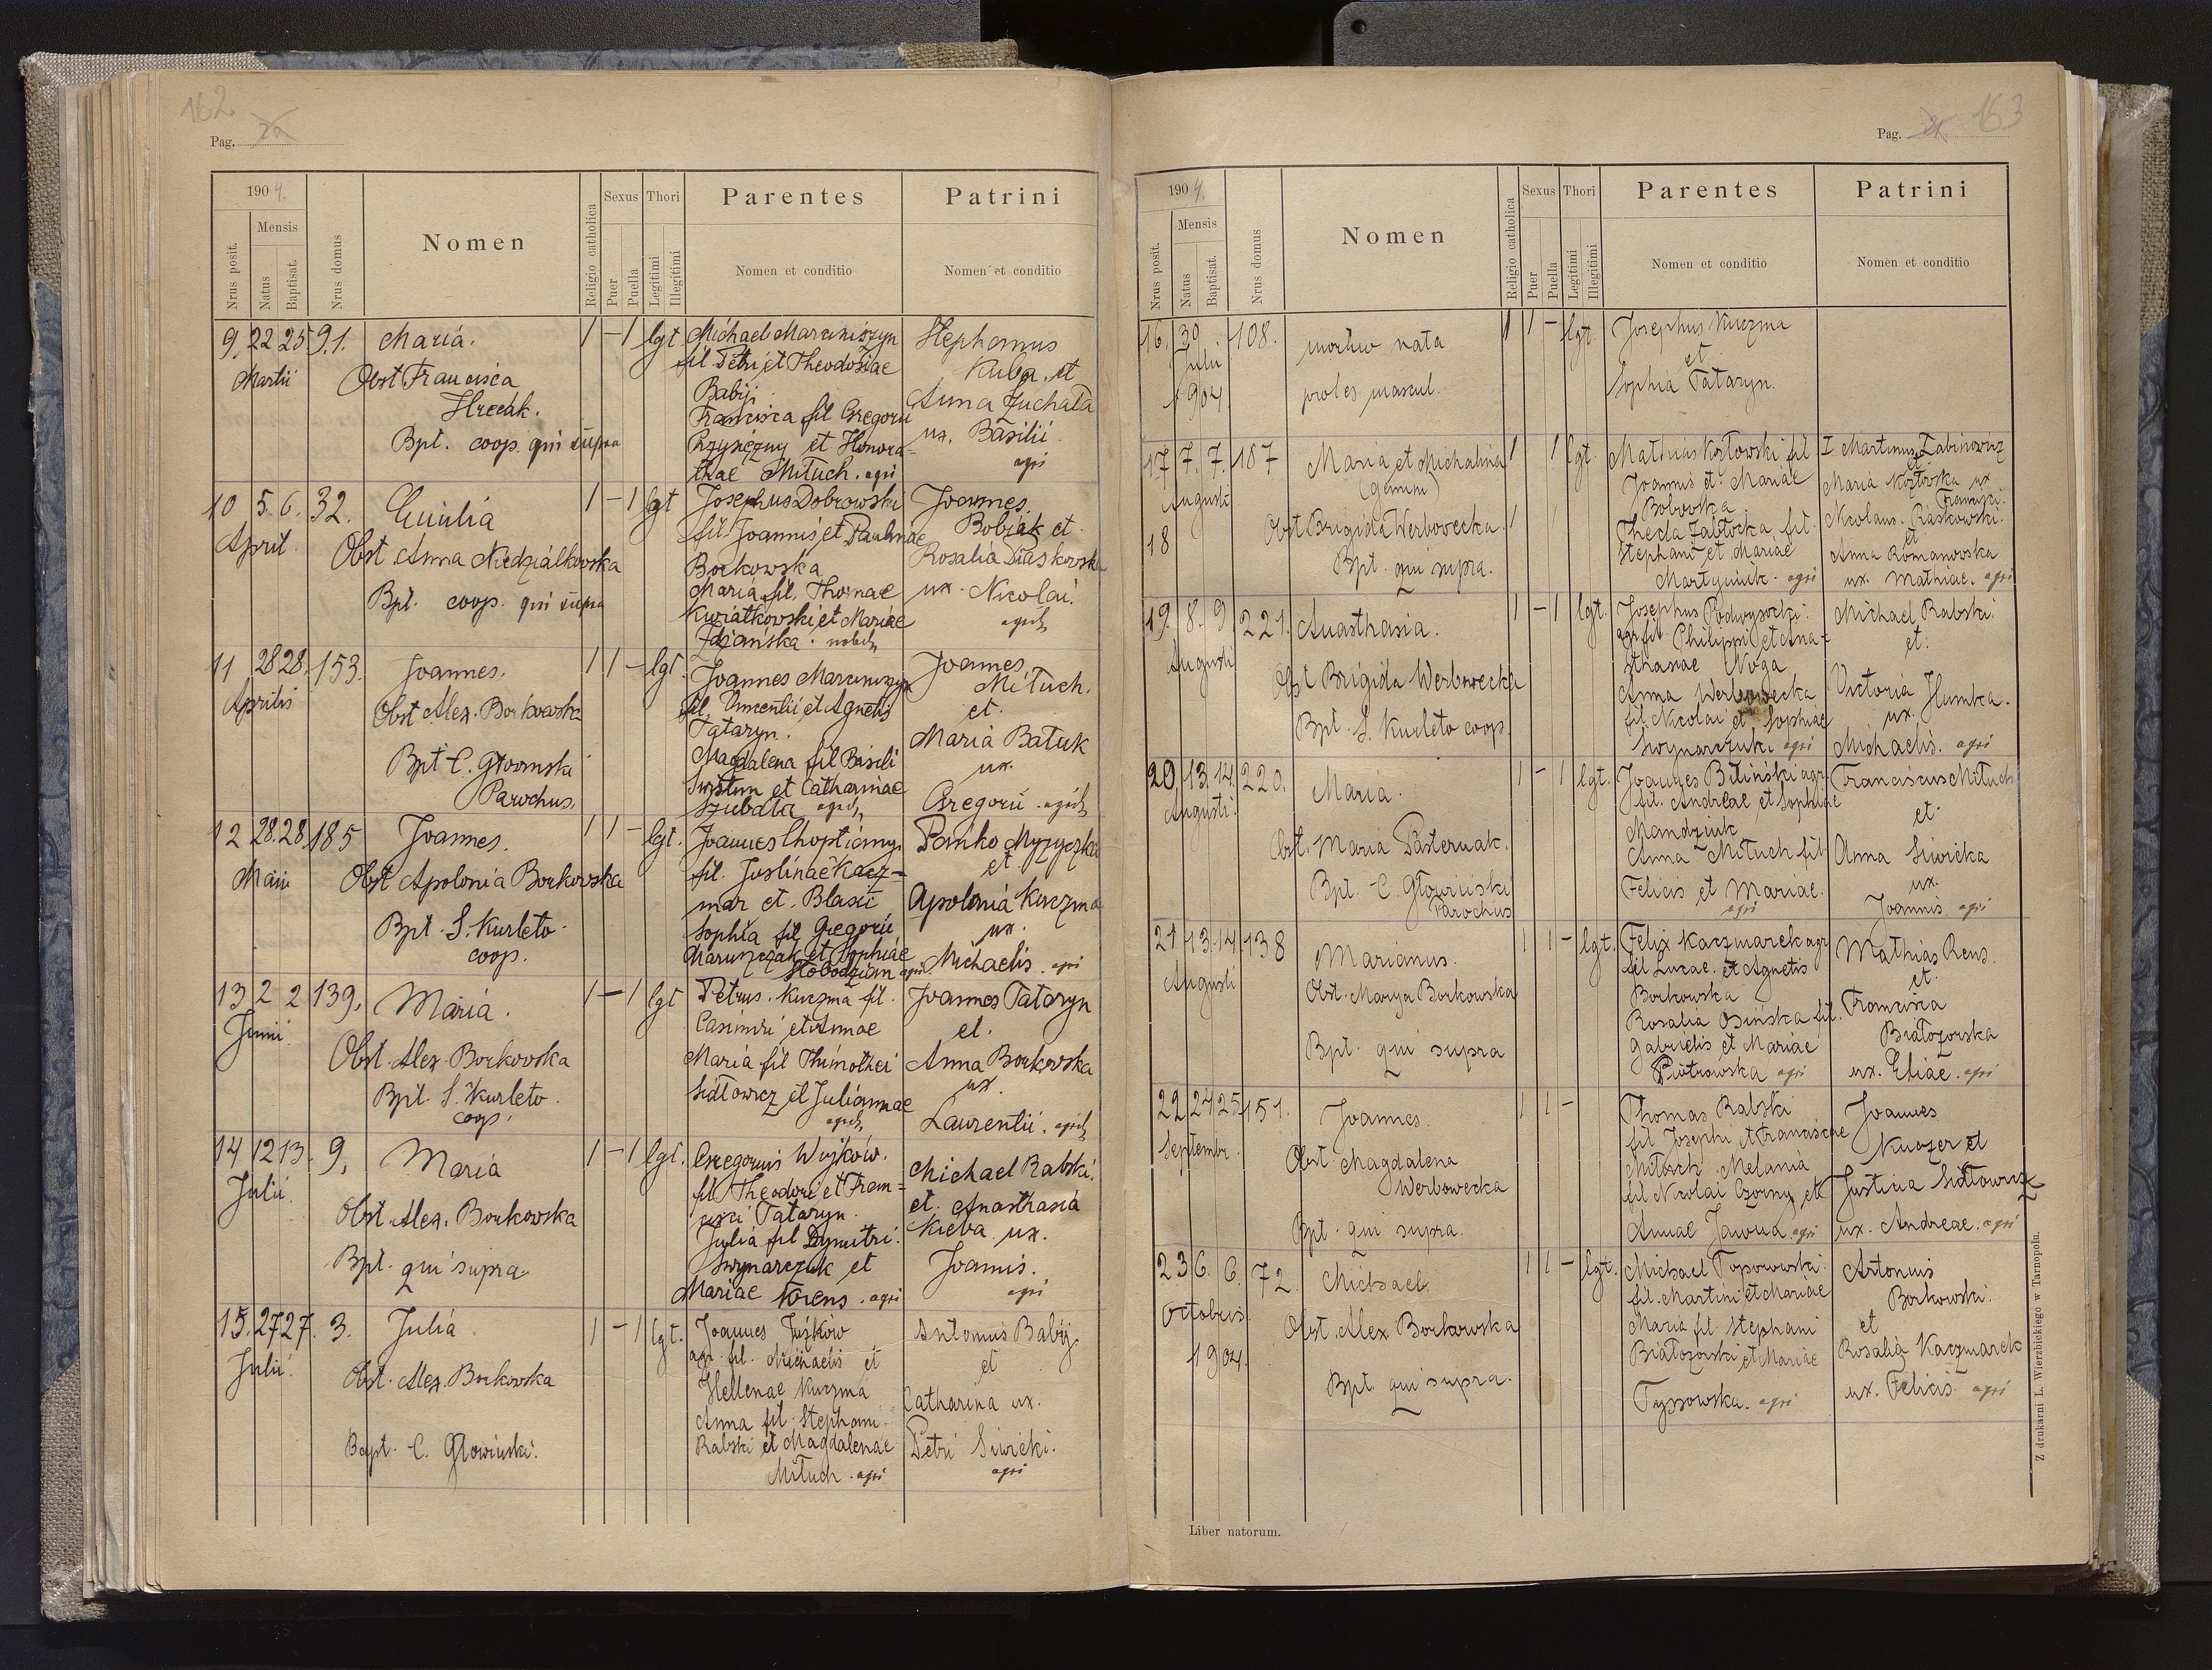 162
Pag. 26
1904.
Nrus posit.
Mensis
Natus
Baptisat.
Nrus domus
Nomen
Religio catholica
Sexus
Puer
Puella
Thori
Legitimi
Illegitimi
Parentes
Nomen et conditio
Patrini
Nomen et conditio
9. 22 25 91. Maria. 1 – 1 lgt.
Martii
Obst Francisca
Hrecak.
Bpt. coop. qui supra
Michael Marciniszyn
fil Petri et Theodosiae
Babij
Francisca fil Gregorii
Przysiężny et Honora=
thae Mituch. agri
Stephanus
Kuba et
Anna Juchała
ux. Basilii
agri
10 5. 6. 32. Emilia 1 – 1 lgt
April.
Obst Anna Niedziałkowska
Bpt. coop. qui supra
Josephus Dobrowski
fil. Joannis et Paulinae
Borkowska
Maria fil. Thomae
Kwiatkowski et Mariae
Zdżańska. nobch
Joannes
Bobiak et
Rosalia Raskowska
ux. Nicolai.
agrch
11 28 28. 153. Joannes. 1 1 – lgt.
Aprilis
Obst Alex. Borkowska
Bpt C. Głowinski
Parochus.
Joannes Marciniszyn
fil. Vincentii et Agnetis
Tataryn.
Magdalena fil Basili
Swistun et Catharinae
Szubata agrch
Joannes
Mituch.
et.
Maria Batuk
ux.
Gregorii. agrch
12 28. 28. 185 Joannes. 1 1 – lgt.
Maii
Obst Apolonia Borkowska
Bpt. S. Kurleto
coop.
Joannes Choptiany
fil. Justinae Kacz=
mar et. Blasii
Sophia fil Gregorii
Maruszczak et Sophiae
Słobodzian agri
Pańko Myzyczka
et.
Apolonia Kuczma
ux.
Michaelis. agri
13 2 2 139. Maria. 1 – 1 lgt
Junii
Obst. Alex. Borkowska
Bpt. S. Kurleto
coop.
Petrus. Kuczma fil.
Casimiri et Annae
Maria fil Thimothei
Sidłowicz et Juliannae
agrch
Joannes Tataryn
et.
Anna Borkowska
ux.
Laurentii. agrch
14 12 13. 9. Maria 1 – 1 lgt.
Julii.
Obst. Alex. Borkowska
Bpt. qui supra
Gregorius Wujków.
fil. Theodori et Fran=
ciszki Tataryn.
Julia fil Dymitri.
Swynarczuk et
Mariae Korens. agri
Michael Rabski.
et. Anasthasia
Kieba ux.
Joanis.
agri
15. 27 27. 3. Julia 1 – 1 lgt.
Julii
Obst. Alex. Borkowska
Bapt. C. Głowiński.
Joannes Juśków
agr. fil. Michaelis et
Hellenae Kuczma
Anna fil. Stephani
Rabski et Magdalenae
Mituch. agri
Antonius Babij.
et
Catharina ux.
Petri Siwicki.
agri
163
Pag.
1904.
Nrus posit.
Mensis
Natus
Baptisat.
Nrus domus
Nomen
Religio catholica
Sexus
Puer
Puella
Thori
Legitimi
Illegitimi
Parentes
Nomen et conditio
Patrini
Nomen et conditio
16. 30 108. mortuo nata 1 1 – lgt.
Julii
1904.
proles mascul.
Josephus Kuczma
et
Sophia Tataryn.
17 7. 7. 187 Maria et Michalina 1 1 lgt.
Augusti (gemini)
18 Obst Brigida Werbowecka. 1 1
Bpt. qui supra.
Mathias Kozłowski fil
Joannis et Mariae
Bobowska
Thecla Zabłocka fil.
Stephani et Mariae
Martyniuk. agri
I Martinus Zabinowicz
et
Maria Kozłowska ux
Francisci.
Nicolaus. Raskowski.
et
Anna Romanowska
ux. Mathiae. agri
19. 8. 9 221. Anasthasia. 1 – 1 lgt.
Augusti
Obst Brigida Werbowecka
Bpt. S. Kurleto coop.
Josephus Podwysocki
agr. fil. Philippi et Ana=
sthasiae Noga
Anna Werbowecka
fil. Nicolai et Sophiae
Swynarczuk. agri
Michael Rabski.
et.
Victoria Humka.
ux.
Michaelis. agri
20. 13. 14. 220. Maria. 1 – 1 lgt.
Augusti.
Obst. Maria Pasternak.
Bpt. C. Głowiński
Parochus
Joannes Biliński agr.
fil. Andreae et Sophiae
Mandziuk
Anna Mituch fil
Felicis et Mariae.
agri
Franciscus Mituch
et.
Anna Siwicka
ux.
Joannis. agri
21 13. 14. 138 Marianus. 1 1 – lgt.
Augusti
Obst. Marya Borkowska
Bpt. qui supra
Felix Kaczmarek agr
fil Lucae. et Agnetis
Borkowska
Rosalia Osińska fil.
Gabrielis et Mariae
Piotrowska agri
Mathias Rens.
et.
Francisca
Białozorska
ux. Eliae. agri
22 24 25 151. Joannes. 1 1 –
Septembr.
Obst Magdalena
Werbowecka
Bpt. qui supra.
Thomas Rabski
fil Josephi et Franciscae
Mituch Melania
fil Nicolai Czorny et
Annae Jawna. agri
Joannes
Kuozer et
Justina Sidłowicz
ux. Andreae. agri
23 6. 6. 72. Michael. 1 1 – lgt.
Octobris
Obst Alex Borkowska
1904.
Bpt. qui supra.
Michael Toporowski.
fil. Martini et Mariae
Maria fil. Stephani
Białozorski et Mariae
Tyssowska. agri
Antonius
Borkowski.
et
Rosalia Kaczmarek
ux. Felicis. agri
Liber natorum.
Z drukarni L. Wierzbickiego w Tarnopolu.